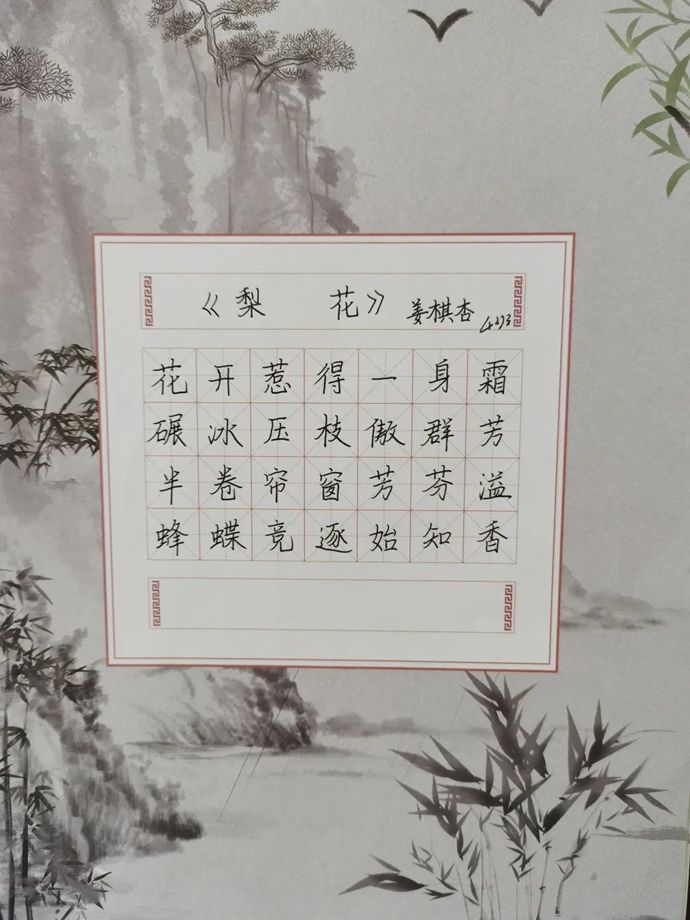 《梨 花》 姜棋杏 4293
花开惹得一身霜
碾冰压枝傲群芳
半卷帘窗芳芬溢
蜂蝶竞逐始知香